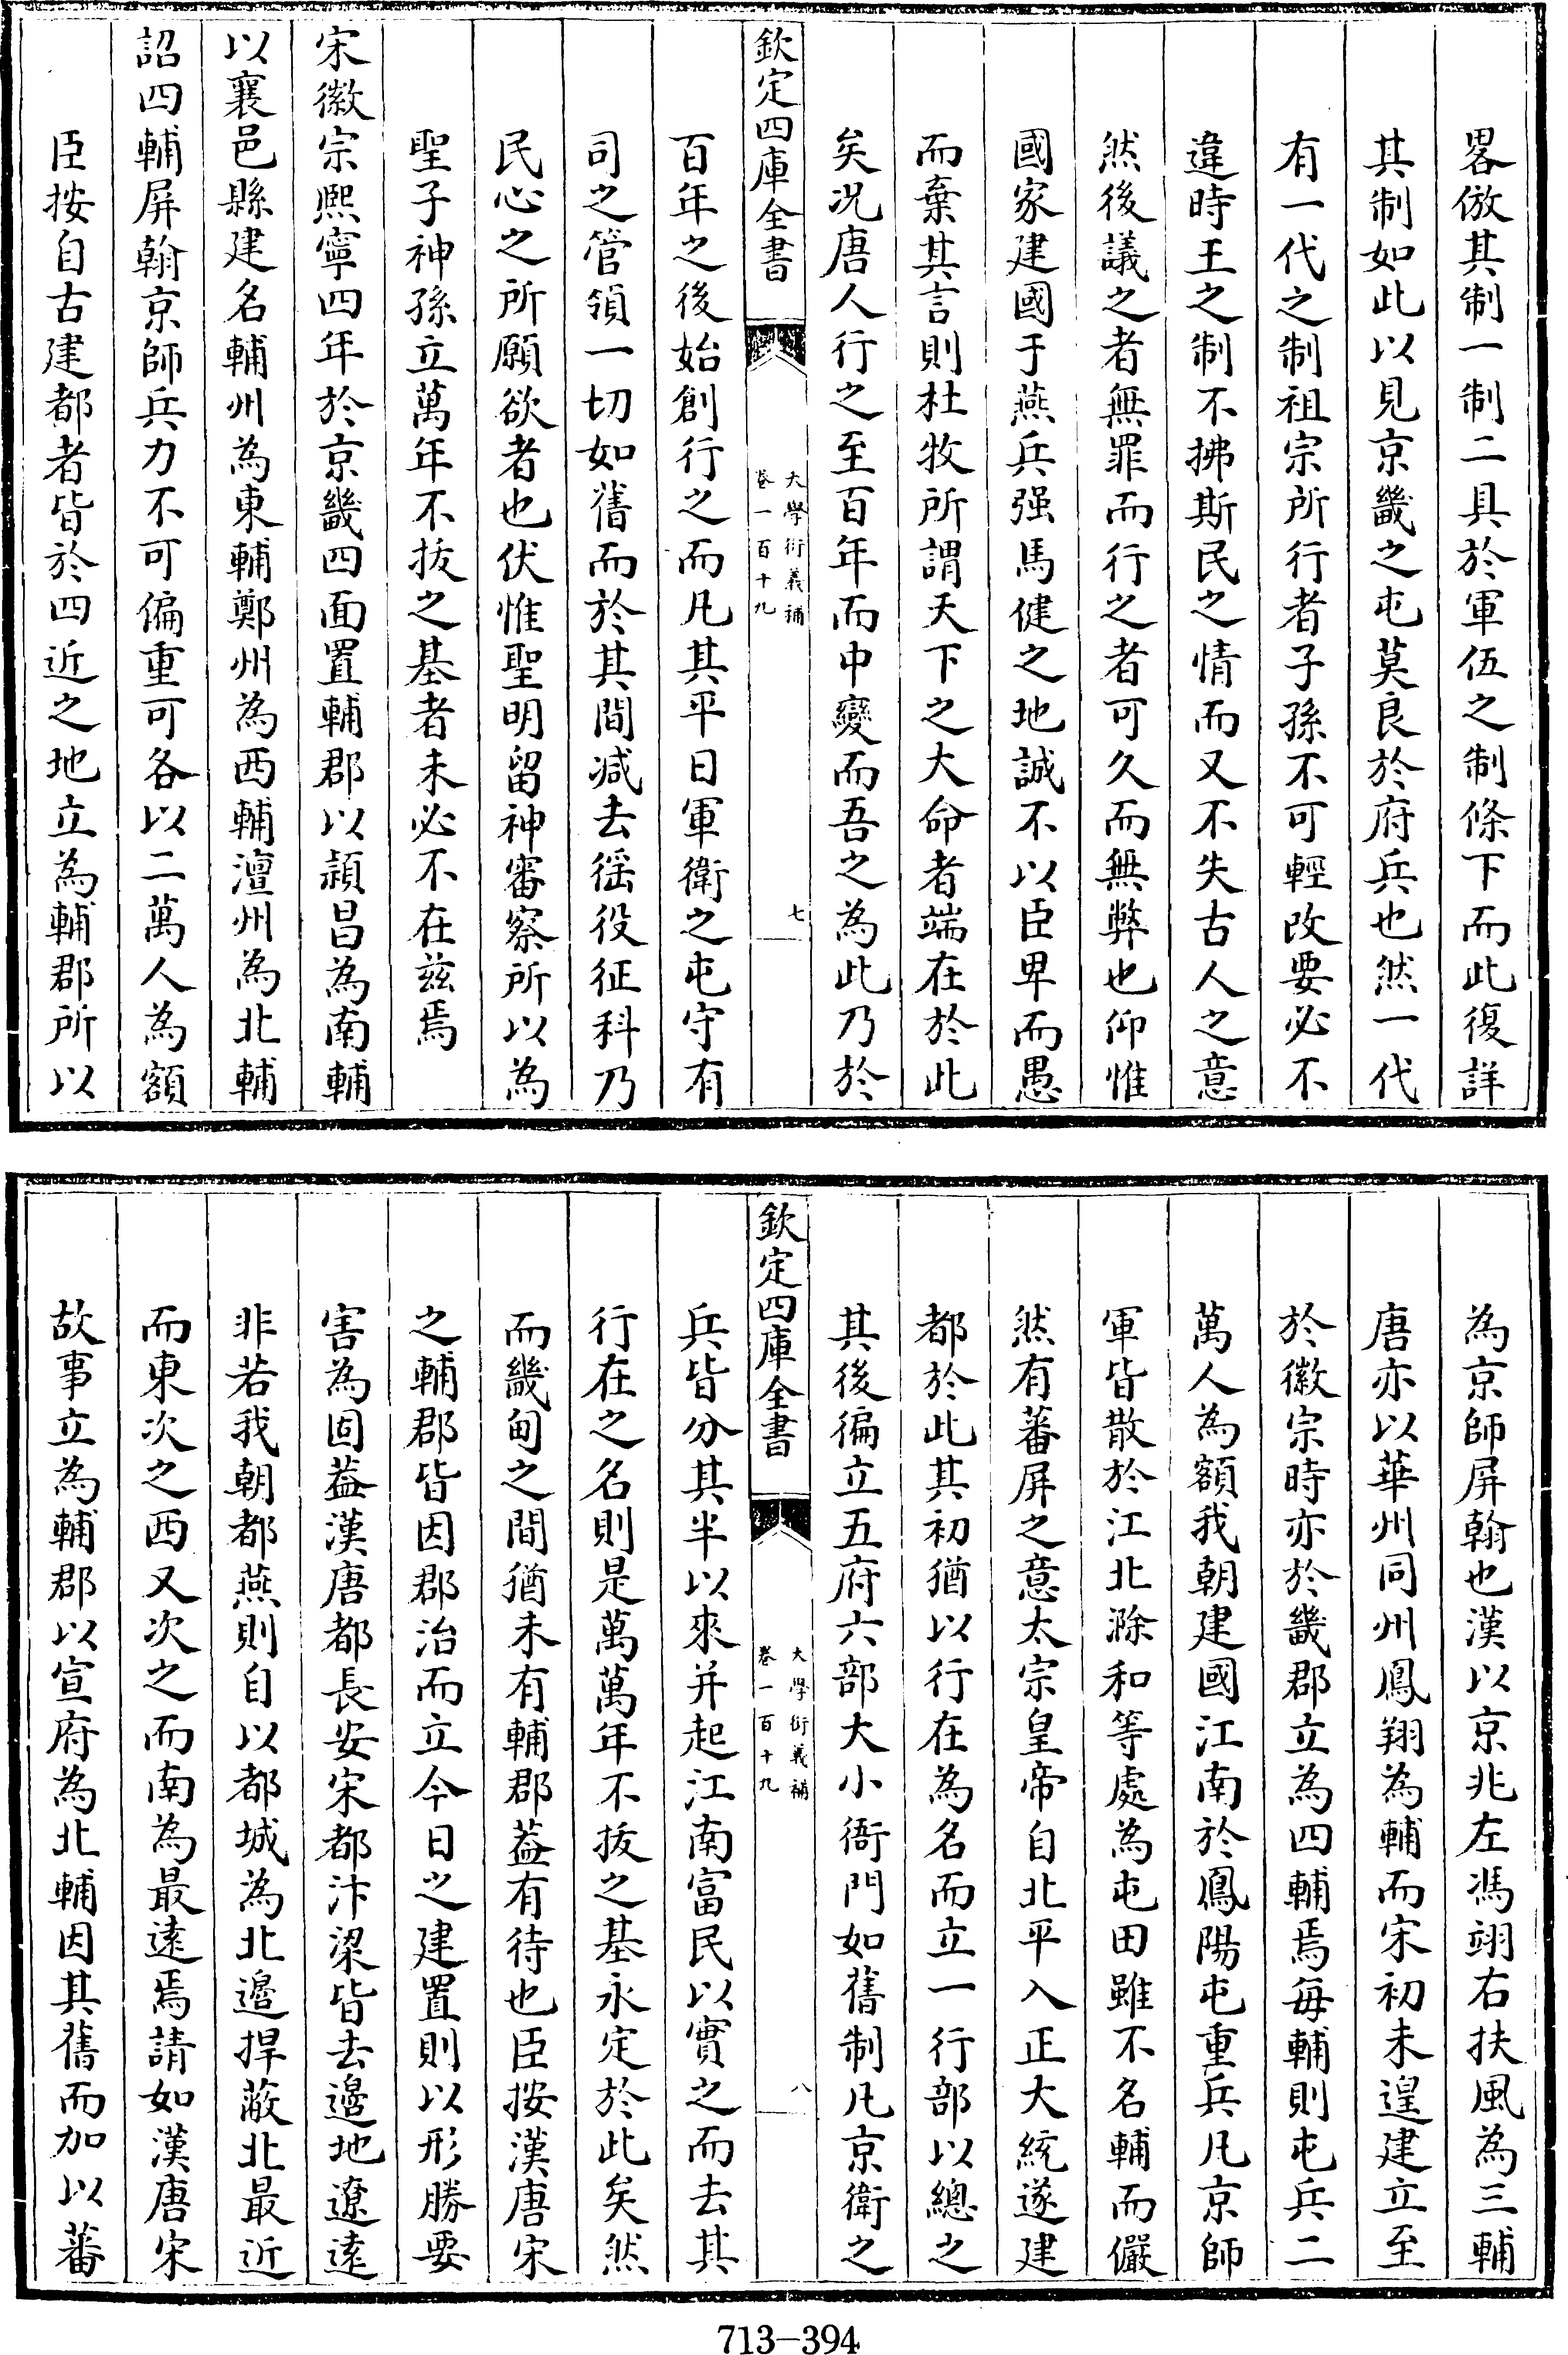 畧倣其制一制二具於軍伍之制條下而此復詳
其制如此以見京畿之屯莫良於府兵也然一代
有一代之制祖宗所行者子孫不可輕改要必不
違時王之制不拂斯民之情而又不失古人之意
然後議之者無罪而行之者可久而無弊也仰惟
國家建國于燕兵强馬健之地誠不以臣卑而愚
而棄其言則杜牧所謂天下之大命者端在於此
矣况唐人行之至百年而中變而吾之為此乃於
欽定四庫全書
大學衍義補
卷一百十九
七
百年之後始創行之而凡其平日軍衛之屯守有
司之管領一切如舊而於其間减去徭役征科乃
民心之所願欲者也伏惟聖明留神審察所以為
聖子神孫立萬年不拔之基者未必不在兹焉
宋徽宗熙寧四年於京畿四面置輔郡以潁昌為南輔
以襄邑縣建名輔州為東輔鄭州為西輔澶州為北輔
詔四輔屏翰京師兵力不可偏重可各以二萬人為額
臣按自古建都者皆於四近之地立為輔郡所以
為京師屏翰也漢以京兆左馮翊右扶風為三輔
唐亦以華州同州鳳翔為輔而宋初未遑建立至
於徽宗時亦於畿郡立為四輔焉每輔則屯兵二
萬人為額我朝建國江南於鳳陽屯重兵凡京師
軍皆散於江北滁和等處為屯田雖不名輔而儼
然有蕃屏之意太宗皇帝自北平入正大統遂建
都於此其初猶以行在為名而立一行部以總之
其後徧立五府六部大小衙門如舊制凡京衛之
欽定四庫全書
大學衍義補
卷一百十九
八
兵皆分其半以來并起江南富民以實之而去其
行在之名則是萬萬年不拔之基永定於此矣然
而畿甸之間猶未有輔郡葢有待也臣按漢唐宋
之輔郡皆因郡治而立今日之建置則以形勝要
害為固葢漢唐都長安宋都汴梁皆去邊地遼遠
非若我朝都燕則自以都城為北邊捍蔽北最近
而東次之西又次之而南為最逺焉請如漢唐宋
故事立為輔郡以宣府為北輔因其舊而加以蕃
713-394